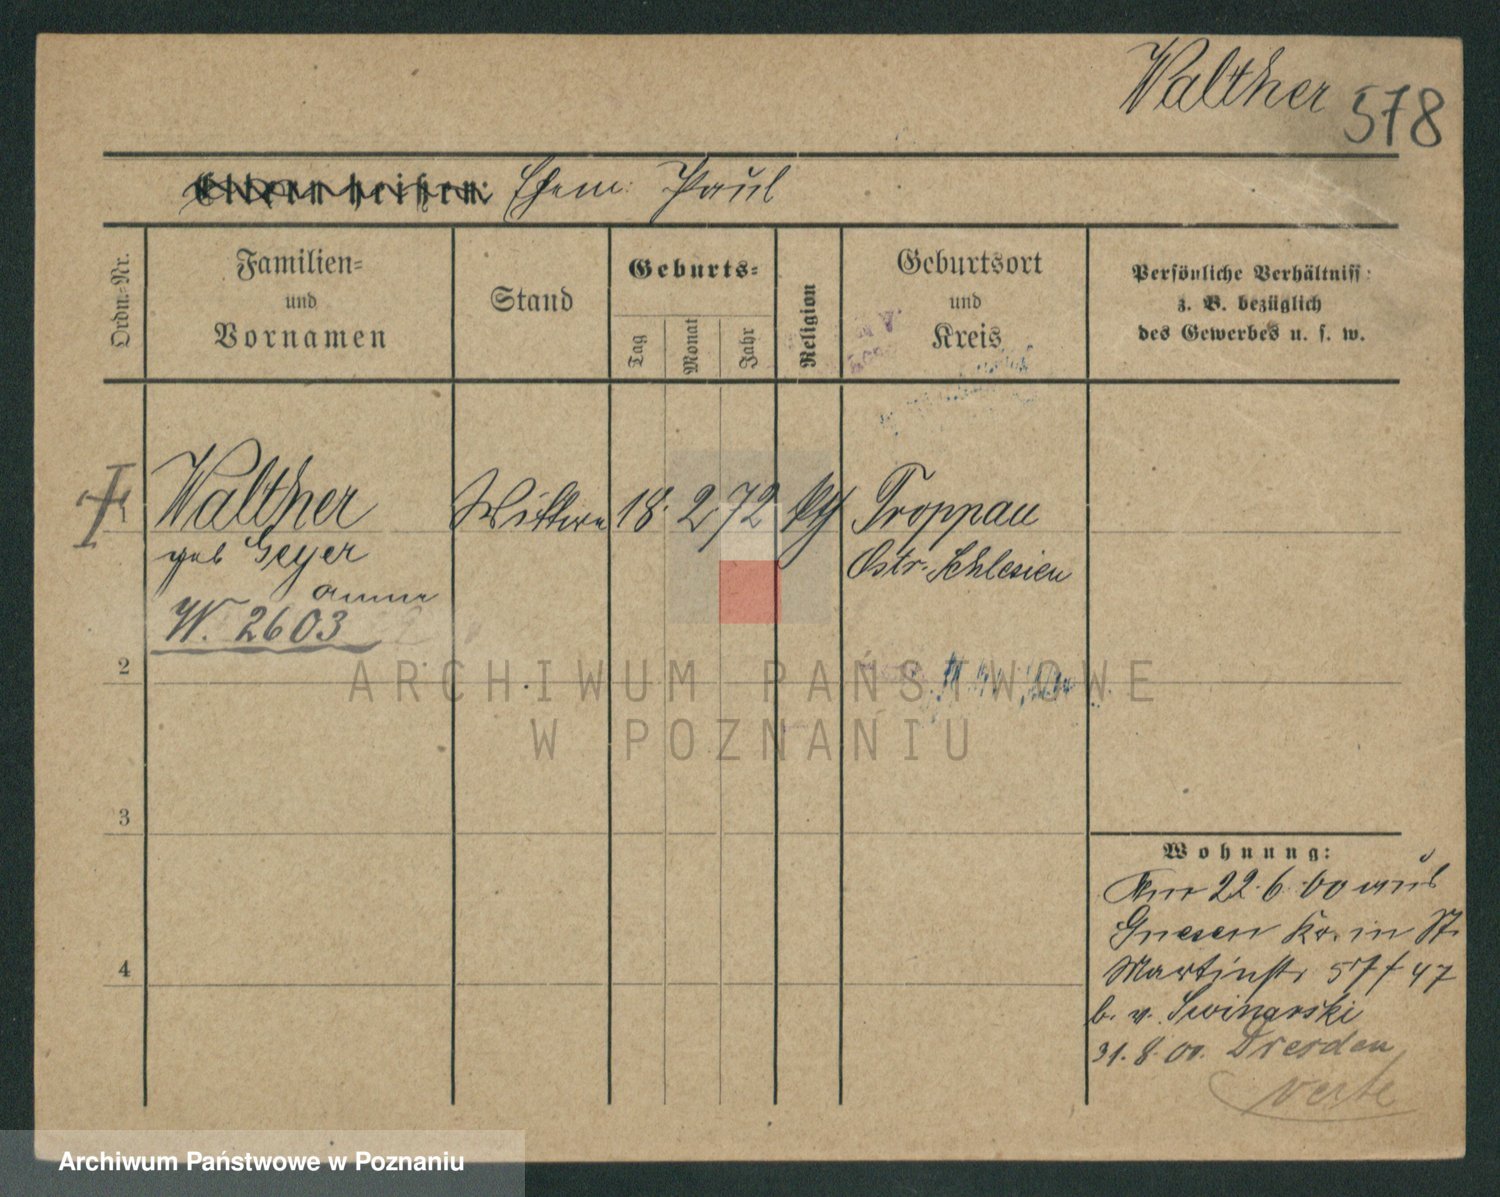 Walther 578
Eltern heißen: Ehem: Paul
Ordn.-Nr.
Familien-
und
Vornamen
Stand
Geburts-
Tag
Monat
Jahr
Religion
Geburtsort
und
Kreis
Persönliche Verhältniss
z. B. bezüglich
des Gewerbes u. s. w.
Walther
geb Geyer
Anna
W. 2603
Wittwe
18. 2 72
Troppau
Östr. Schlesien
2
3
4
Wohnung:
Am 22. 6. 00 aus
Gnesen Kr. in St.
Martinstr 57 / 47
b. v. Swinarski
31. 8. 00. Dresden
verte
ARCHIWUM PAŃSTWOWE
W POZNANIU
Archiwum Państwowe w Poznaniu